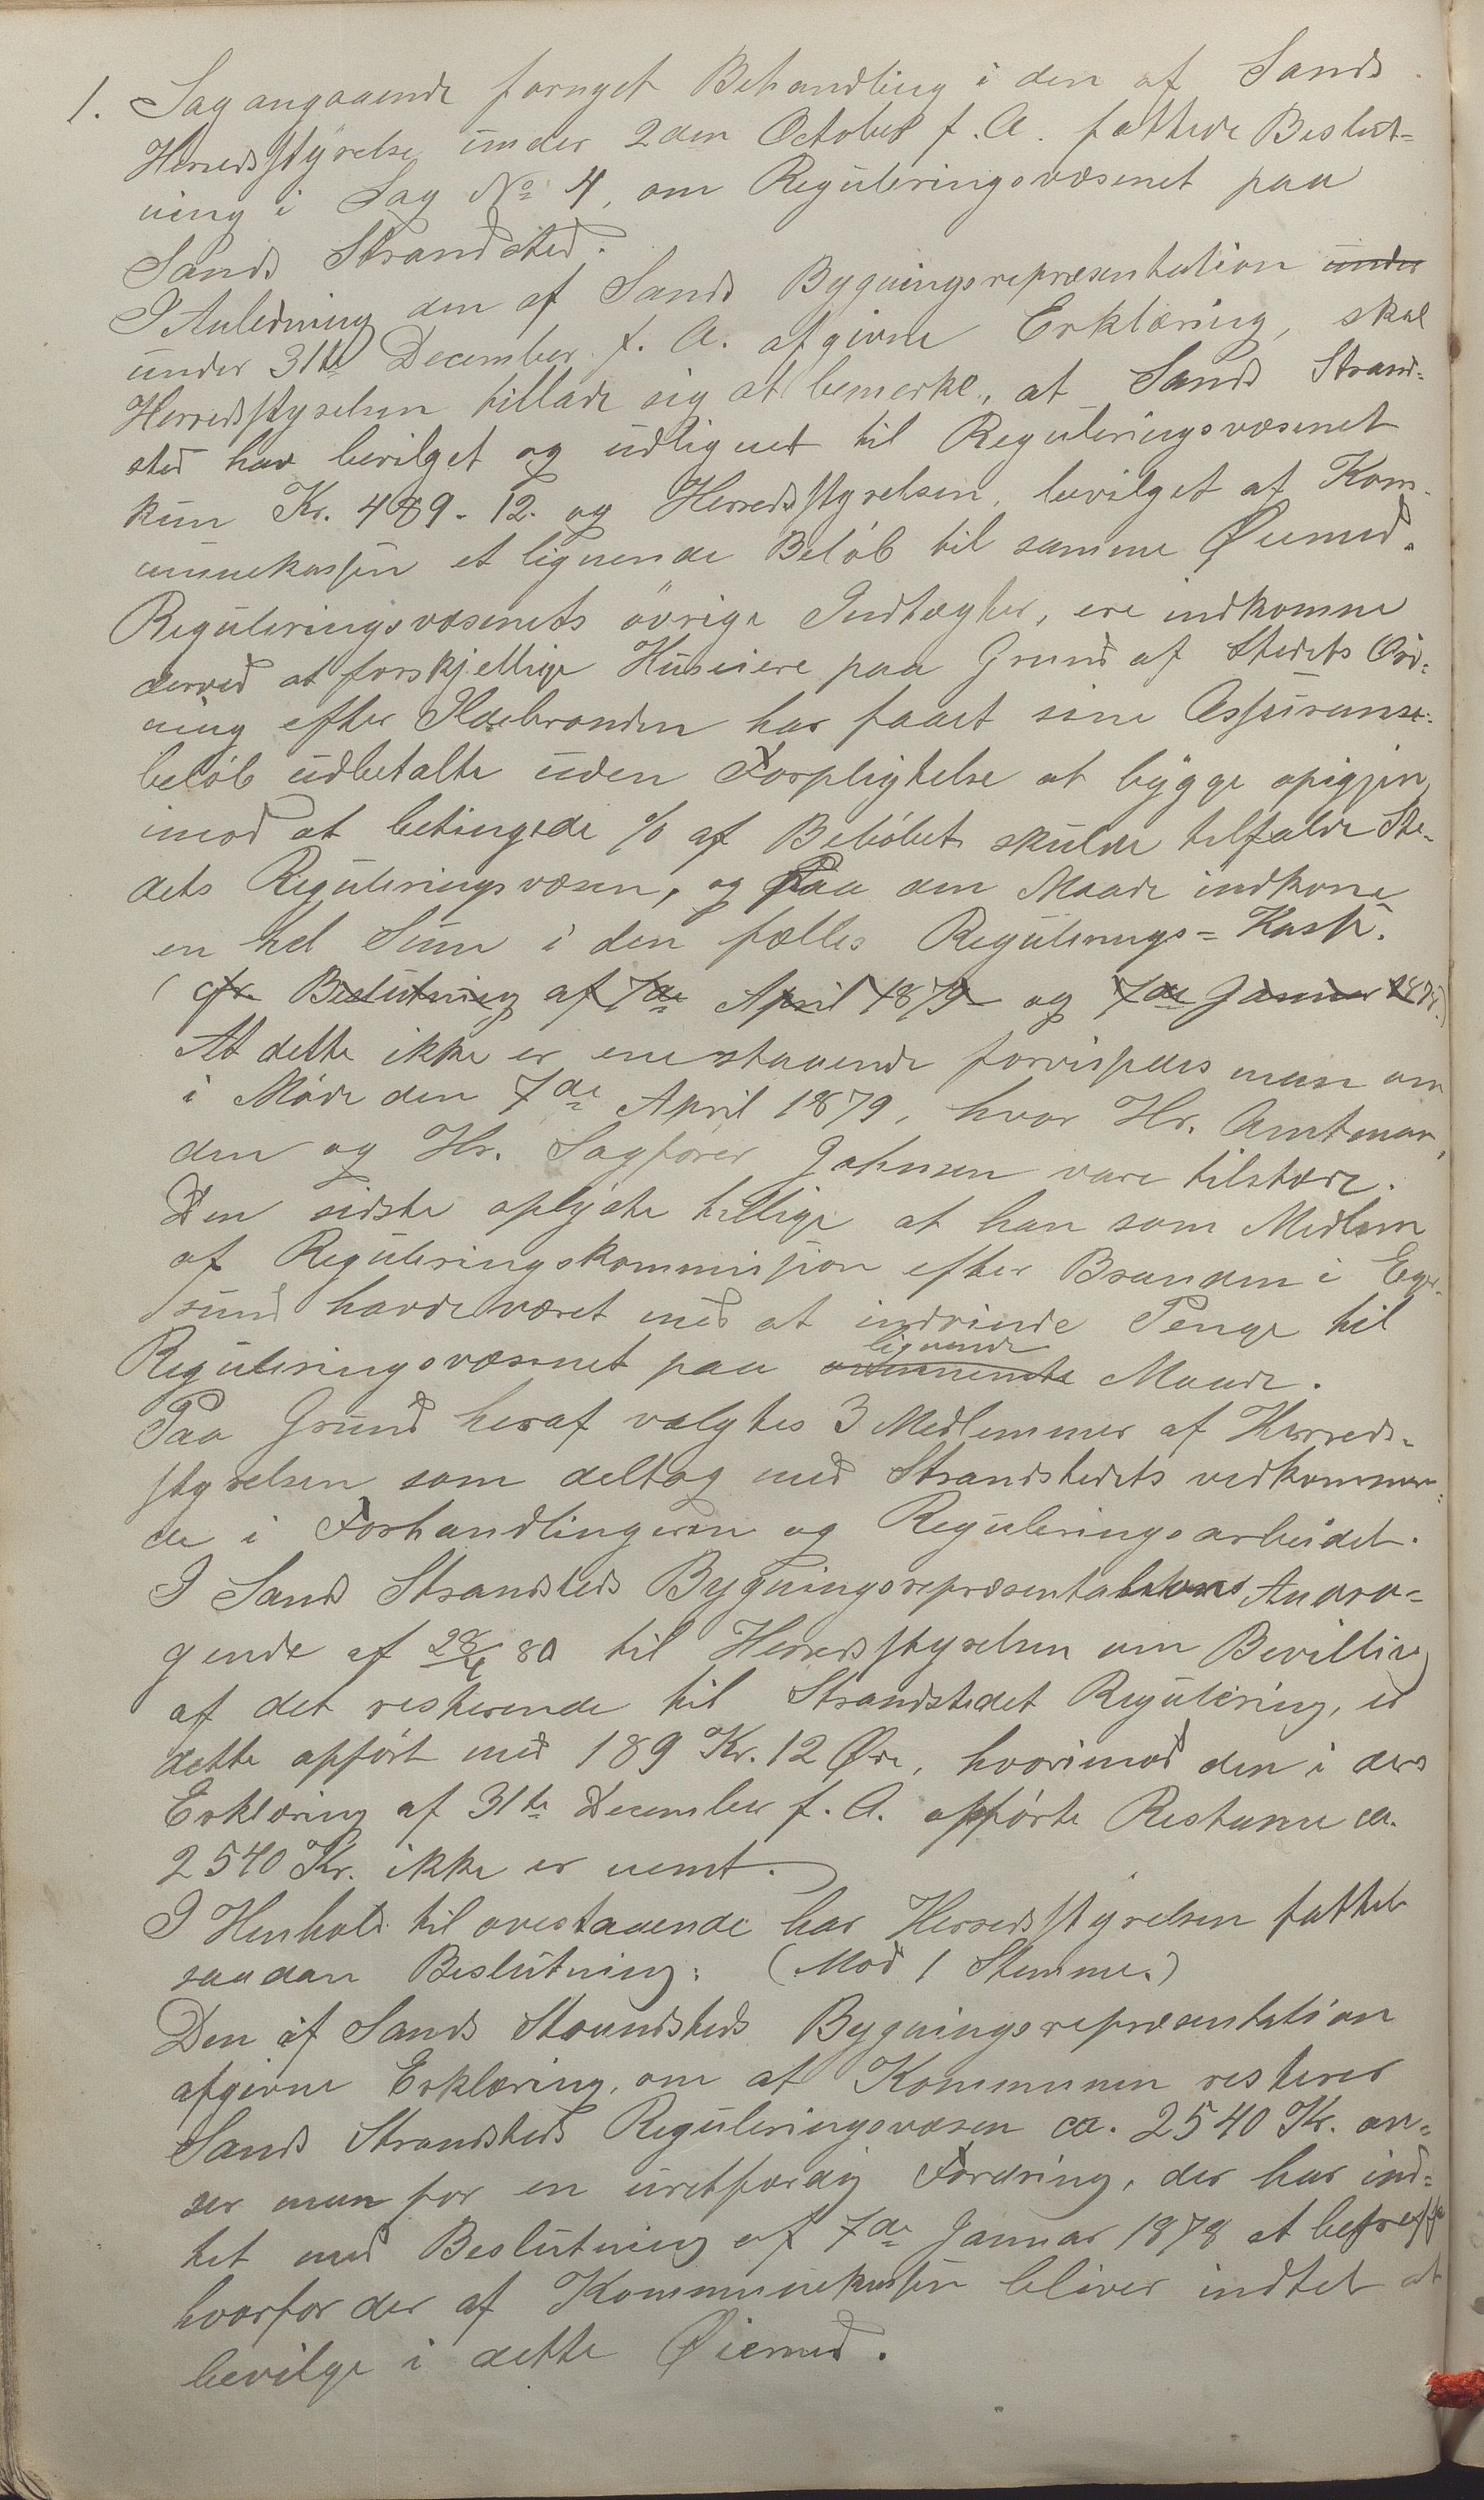 1. Sag angaaende fornyet Behandling i den af Sands
Herredsstyrelse under 2den October f. A. fattede Beslut-
ning i Sag No 4, om Reguleringsvæsenet paa
Sands Strandsted.
I Anledning den af Sands Bygningsrepræsentation under
under 31te December f. A. afgivne Erklæring, skal
Herredsstyrelsen tillade sig at bemerke, at Sands Strand-
sted har bevilget og udlignet til Reguleringsvæsenet
kun Kr. 489-12. og Herredsstyrelsen, bevilget af Kom-
munekassen et lignende Beløb til samme Øiemed.
Reguleringsvæsenets øvrige Indtægter, ere indkomne
derved at forskjellige Huseiere paa Grund af Stedets Ord-
ning efter Ildebranden har faaet sine Assuranse-
beløb udbetalte uden Forpligtelse at bygge opigjen,
imod at betingede % af Beløbet skulde tilfalde Ste-
dets Reguleringsvæsen, og Paa den Maade indkom
en hel Sum i den fælles Regulerings-Kasse.
(cfr. Beslutning af 7de April 1879 og 7de Januar 1878.)
At dette ikke er enestaaende forvissedes man om
i Møde den 7de April 1879, hvor Hr. Amtman-
den og Hr. Sagfører Johnsen vare tilstede.
Den sidste oplyste tillige at han som Medlem
af Reguleringskommission efter Branden i Eger-
sund havde været med at indvinde Penge til
Reguleringsvæsenet paa ovennemte lignende Maade.
Paa Grund heraf valgtes 3 Medlemmer af Herreds-
styrelsen som deltog med Strandstedets vedkommen-
de i Forhandlingeren og Reguleringsarbeidet.
I Sands Strandsteds Bygningsrepræsentations Andra-
gende af 28/4 80 til Herredsstyrelsen om Bevilling
af det resterende til Strandstedet Regulering, er
dette opført med 189 Kr. 12 Øre, hvorimod den i ders
Erklæring af 31te December f. A. opførte Restanse ca.
2540 Kr. ikke er nemt.
I Henhold til ovestaaende har Herredsstyrelsen fattet
saadan Beslutning: (Mod 1 Stemme.)
Den af Sands Strandsteds Bygningsrepræsentation
afgivne Erklæring, om at Kommunen resterer
Sands Strandsteds Reguleringsvæsen ca. 2540 Kr. an-
ser man for en uretfærdig Fordring, der har ind-
tet med Beslutning af 7de Januar 1878 at bestille
hvorfor der af Kommunekassen bliver indtet at
bevilge i dette Øiemed.